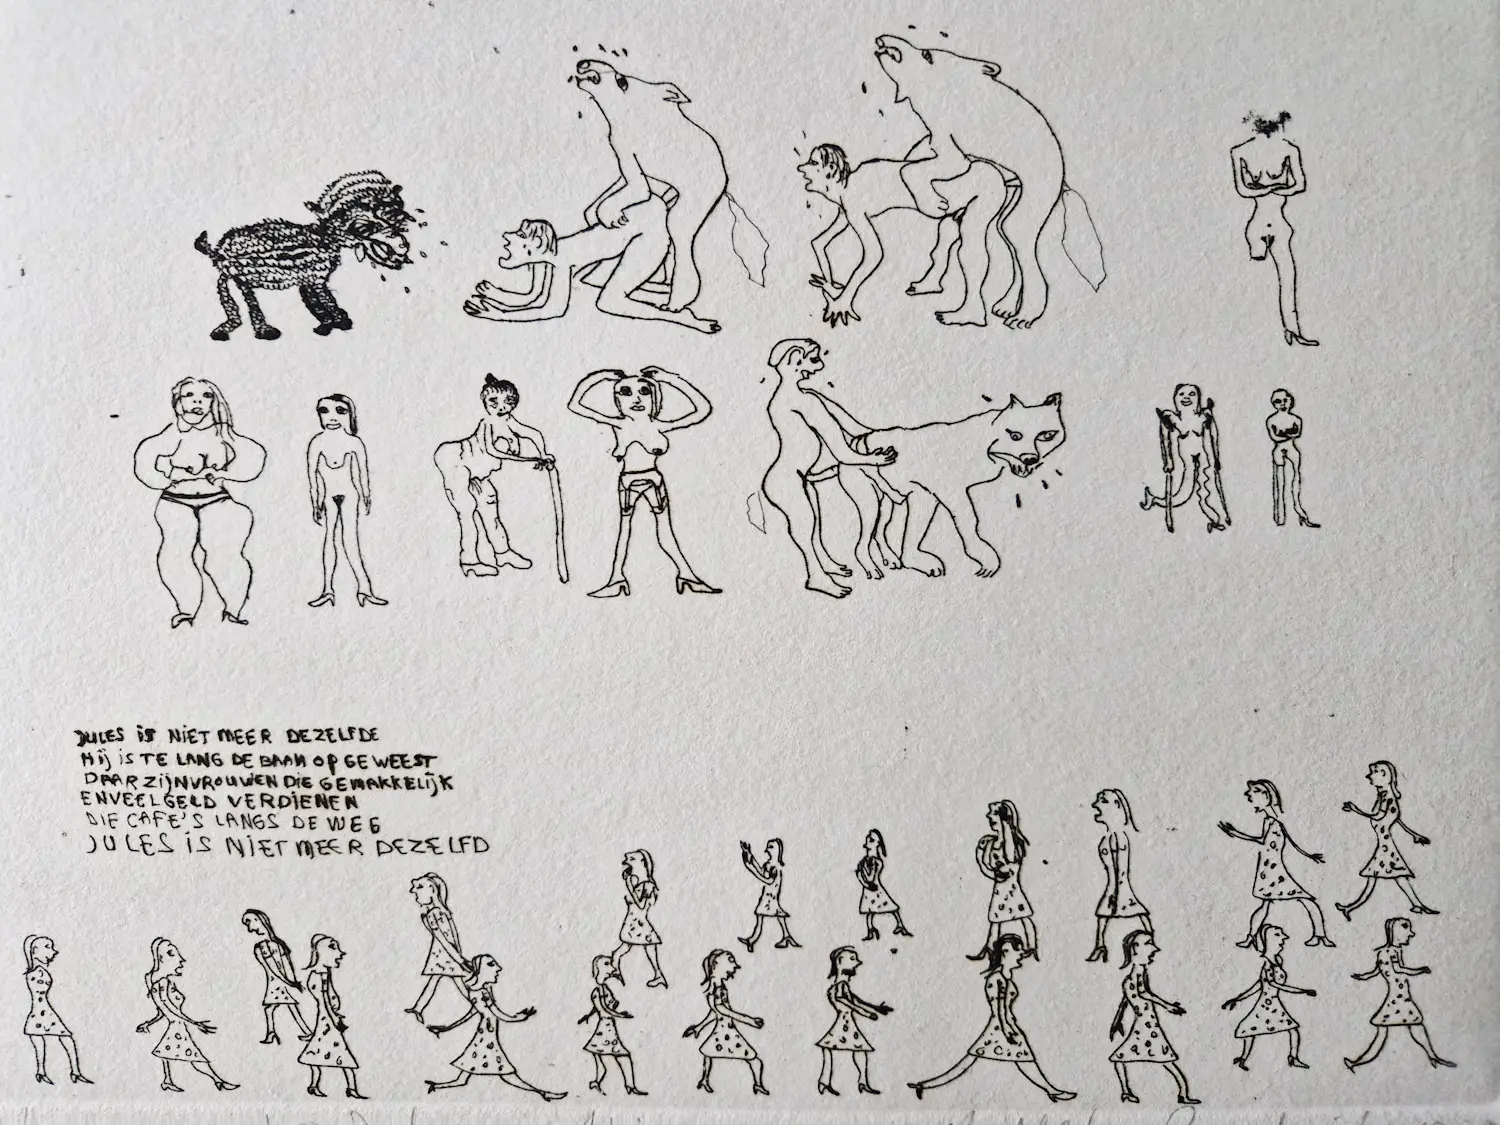 JULES iS NiET MEER DEZELFDE
Hij iS TE LANG DE BAAN OP GEWEEST
DAAR ZijN VROUWEN DiE GEMAKKELijK
EN VEEL GELD VERDiENEN
DiE CAFE'S LANGS DE WEG
JULES iS NiET MEER DEZELFD